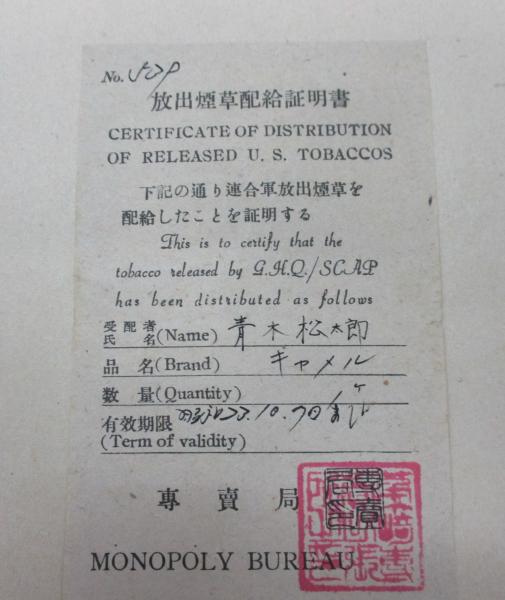 No.
放出煙草配給証明書
CERTIFICATE OF DISTRIBUTION
OF RELEASED U. S. TOBACCOS
下記の通り連合軍放出煙草を
配給したことを証明する
This is to certify that the
tobacco released by G.H.Q./SCAP
has been distributed as follows
受配者氏名(Name) 青木松太郎
品名(Brand) キャメル
数量(Quantity)
有效期限 昭和23.10.7日
(Term of validity)
專賣局
MONOPOLY BUREAU